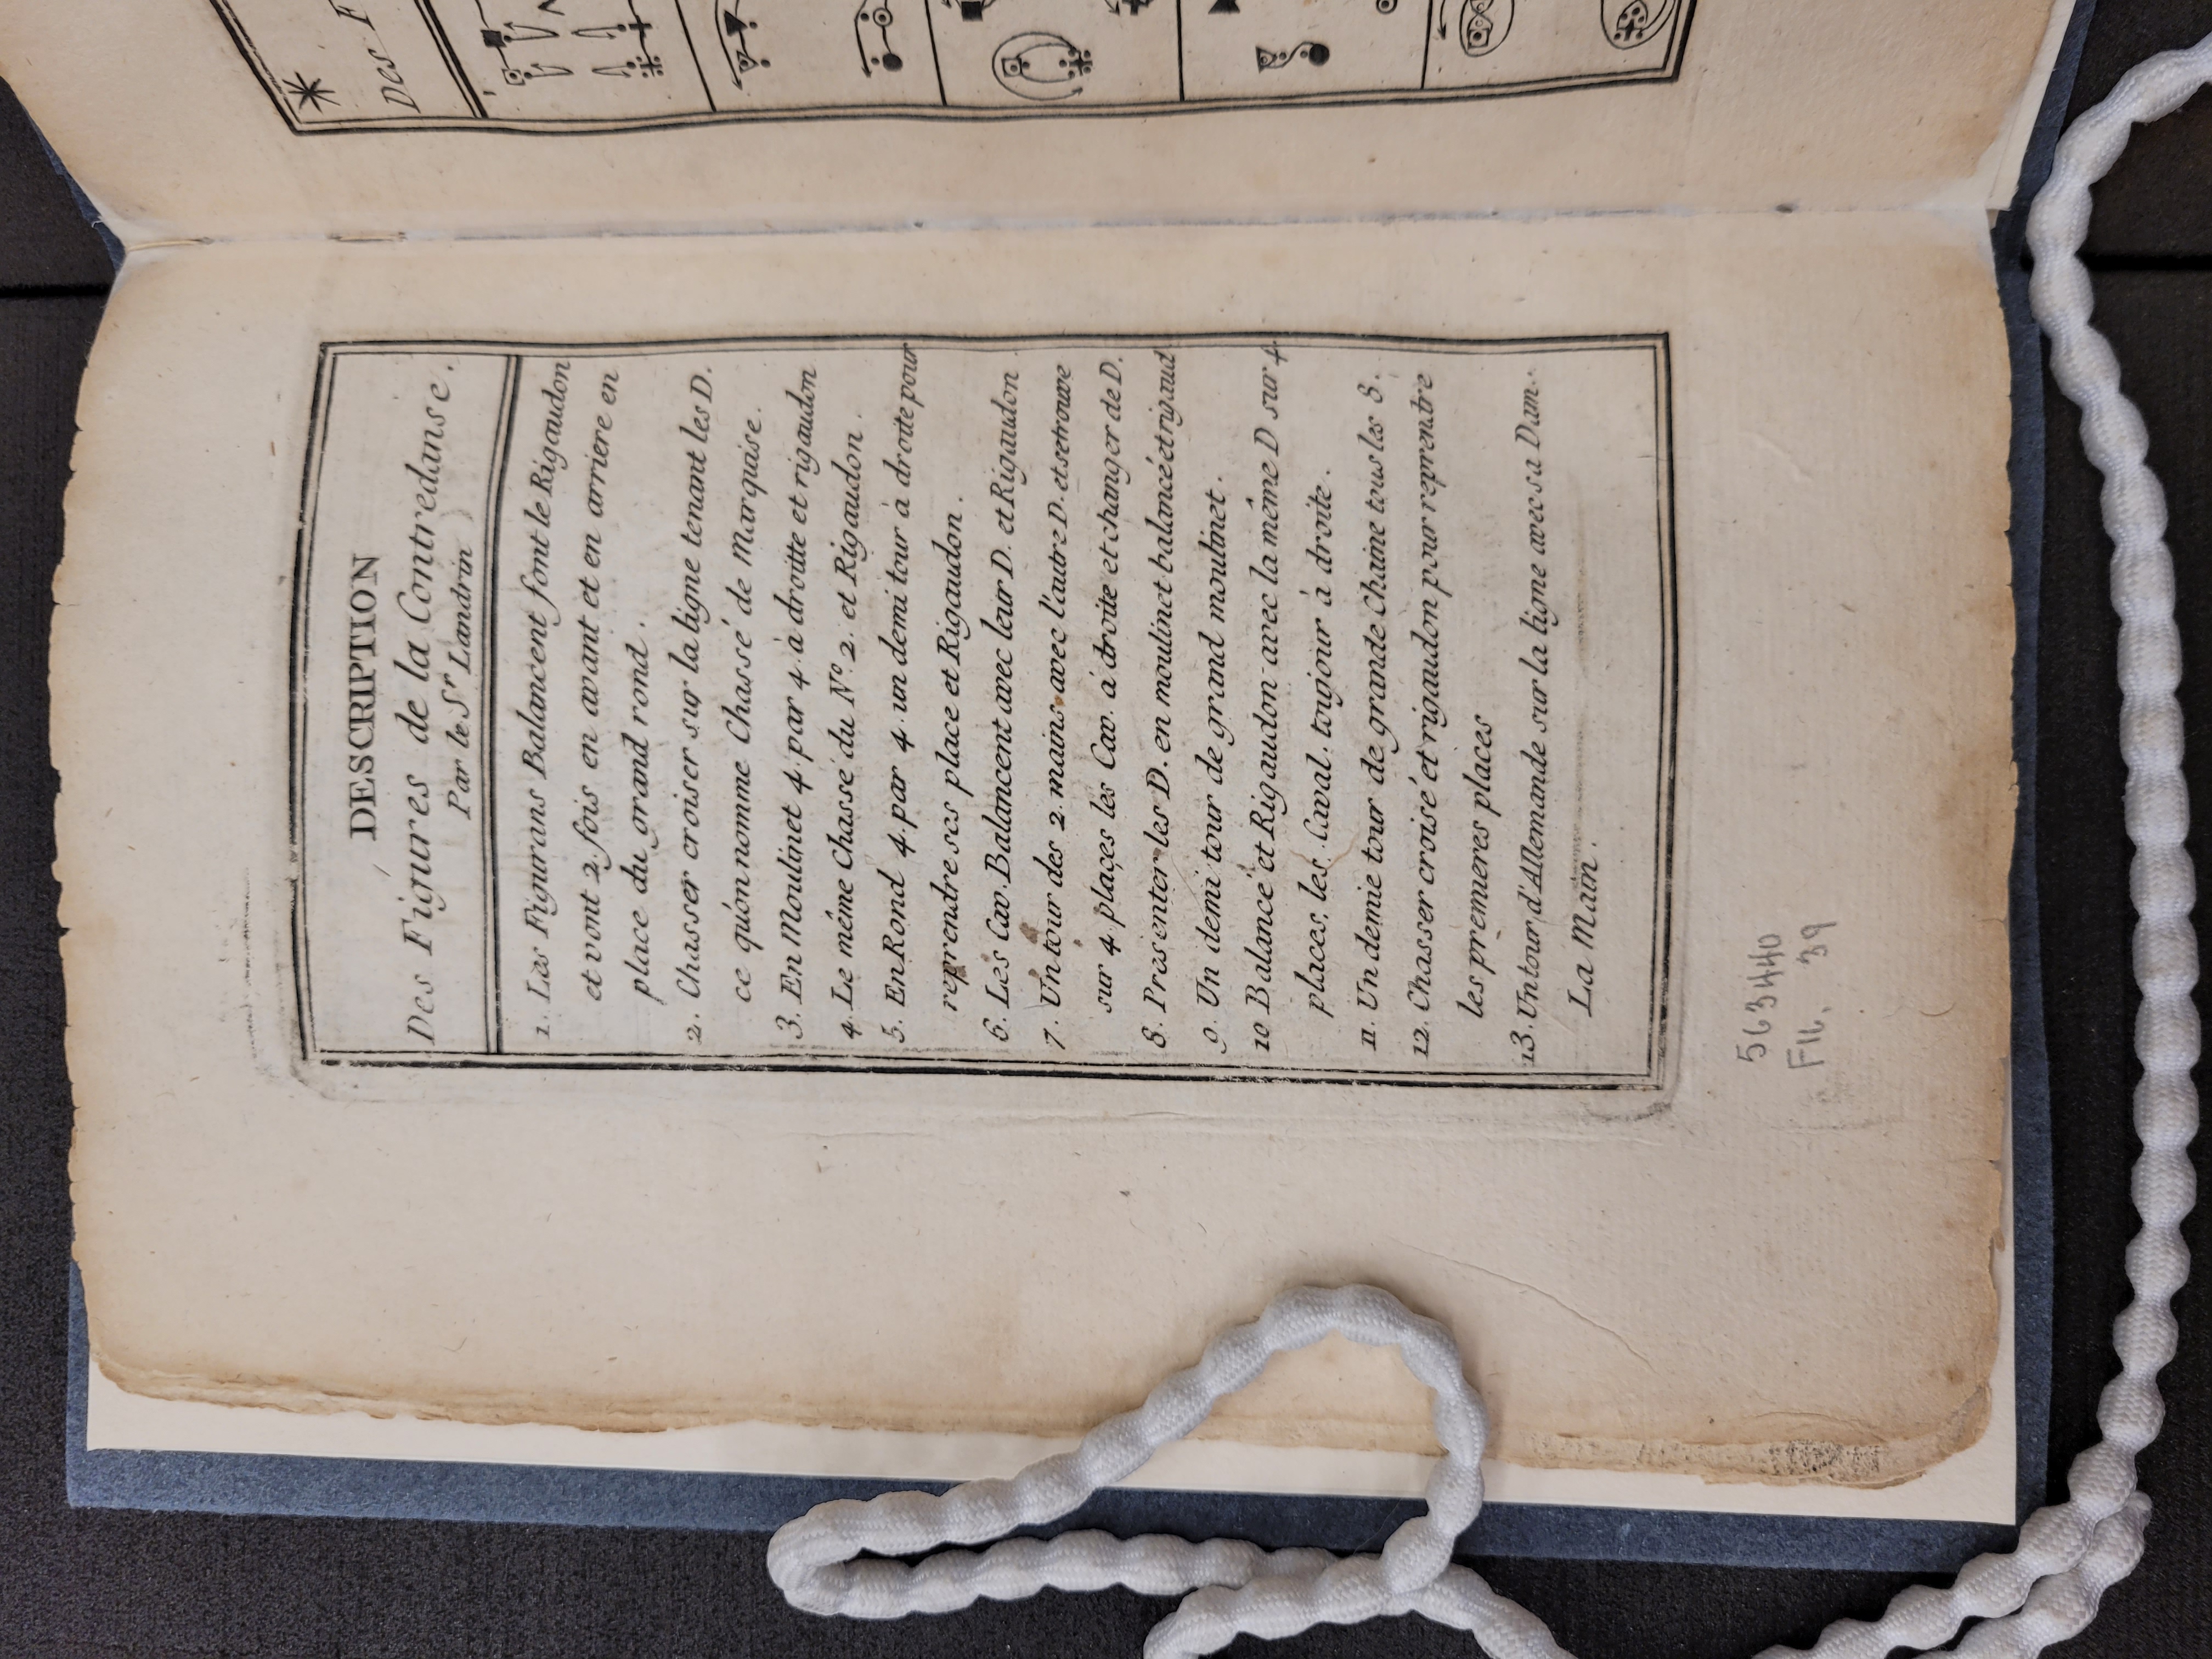 DESCRIPTION
Des Figures de la Contredanse.
Par le Sr Landrin
1. Les Figurans Balancent font le Rigaudon
et vont 2 fois en avant et en arriere en
place du grand rond.
2. Chasser croiser sur la ligne tenant les D.
ce qu'on nomme Chassé de Marquise.
3. En Moulinet 4 par 4 à droitte et rigaudon
4. Le même Chassé du No. 2. et Rigaudon.
5. En Rond 4 par 4 un demi tour à droite pour
reprendre ses place et Rigaudon.
6. Les Cav. Balancent avec leur D. et Rigaudon
7. Un tour des 2 mains avec l'autre D. et se trouve
sur 4 plaçes les Cav. à droite et changer de D.
8. Presenter les D. en moulinet balancé et rigaud
9. Un demi tour de grand moulinet.
10 Balancé et Rigaudon avec la même D sur 4
places, les Caval. toujour à droite.
11. Un demie tour de grande Chaine tous les 8.
12. Chasser croisé et rigaudon pour reprentre
les premieres places
13. Un tour d'Allemande sur la ligne avec sa Dam.
La Main.
563440
FIL. 39
Des F